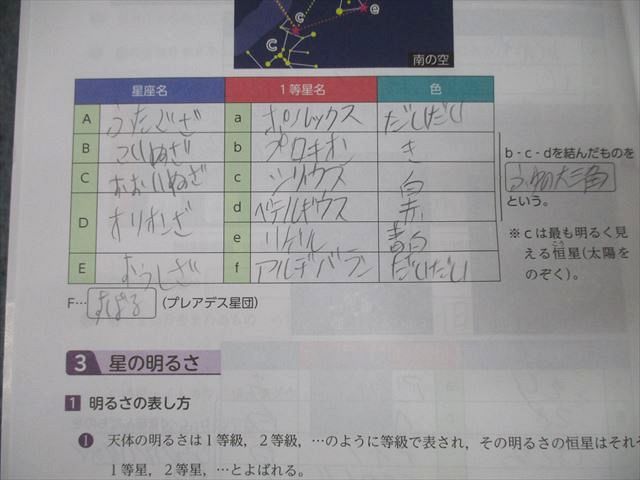 c
e
C
南の空
星座名 1等星名 色
A ふたござ a ポルックス だいだい
B こいぬざ b プロキオン き
C おおいぬざ c シリウス 白
D オリオンざ d ベテルギウス 赤
e リゲル 青白
E おうしざ f アルデバラン だいだい
b-c-dを結んだものを
冬の大三角
という。
※cは最も明るく見
える恒星(太陽を
こう
のぞく)。
F… すばる (プレアデス星団)
3 星の明るさ
1 明るさの表し方
❶ 天体の明るさは1等級，2等級，…のように等級で表され，その明るさの恒星はそれぞ
1等星，2等星，…とよばれる。